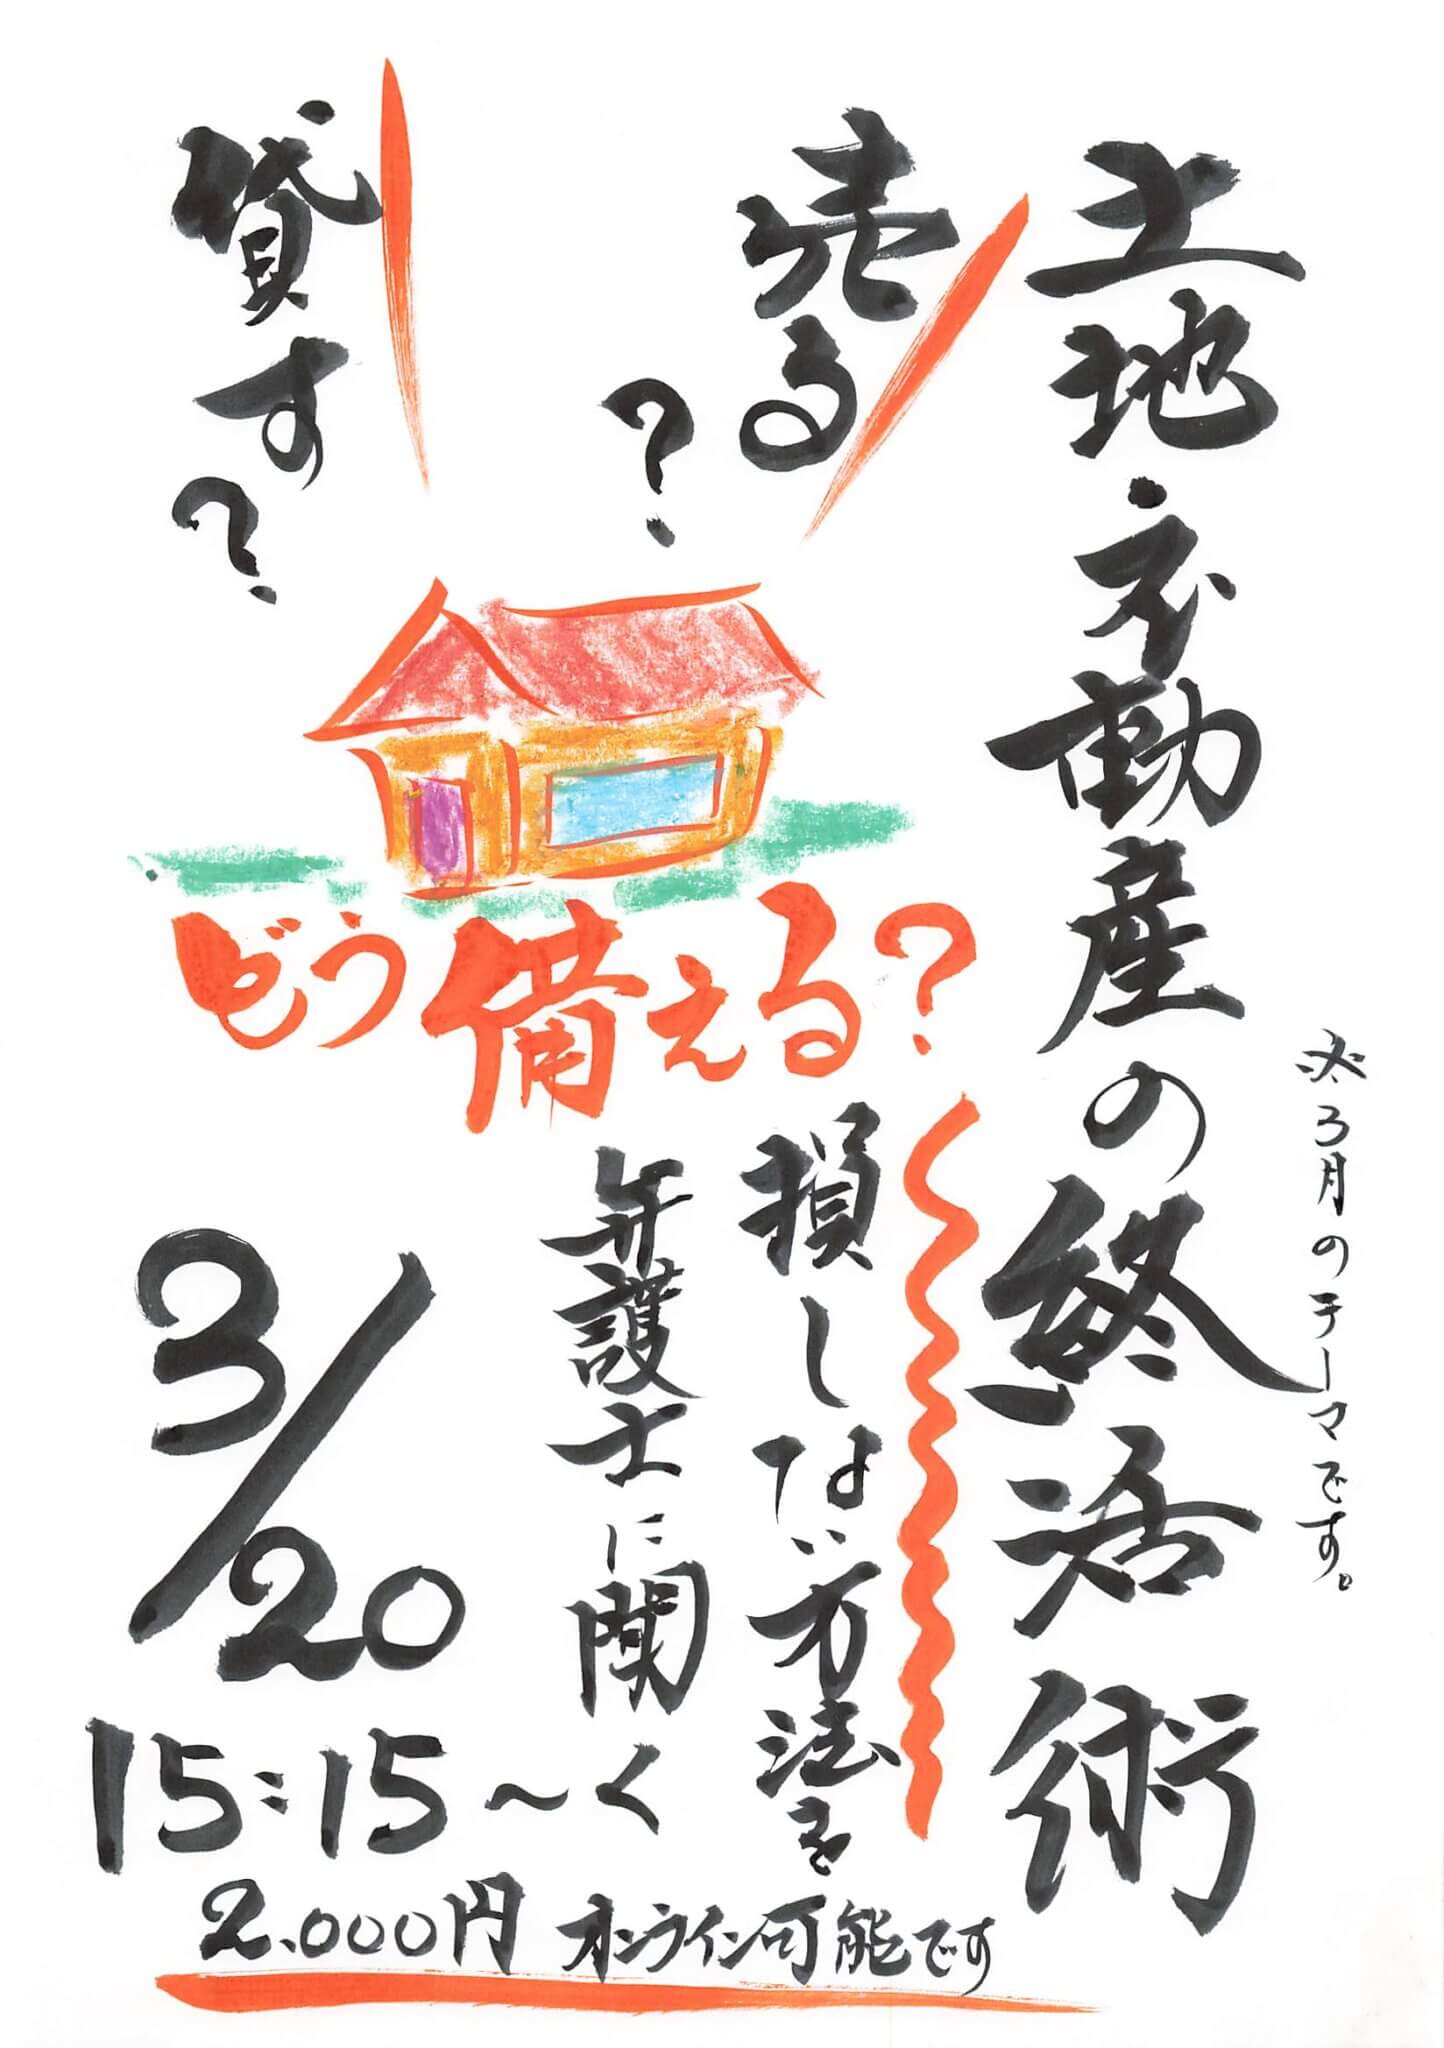 ※3月のテーマです。
土地不動産の終活術
売る?
貸す?
どう備える?
損しない方法を
弁護士に聞く
3/20
15:15~
2.000円 オンライン可能です